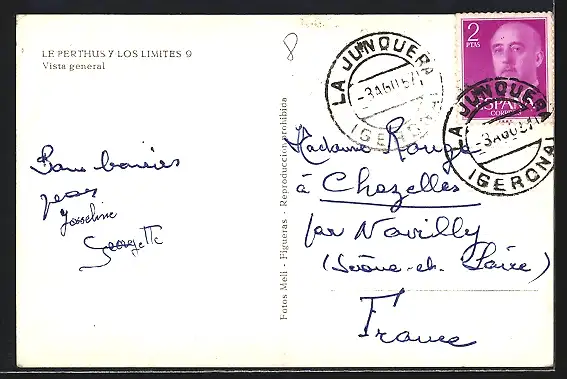 LE PERTHUS Y LOS LIMITES 9
Vista general
8
2
PTAS
ESPAÑA
CORREOS
LA JUNQUERA
-3 AGO 57
(GERONA)
LA JUNQUERA
-3 AGO 57
(GERONA)
Fotos Meli - Figueras - Reproduccion prohibida
Bons baisers
Josseline
Georgette
Madame Rouge
à Chazelles
par Navilly
(Saône-et-Loire)
France